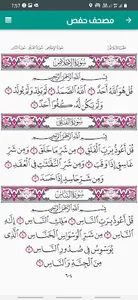 7:57
مصحف حفص
سُورَةُ الإِخْلَاصِ
بِسْمِ اللَّهِ الرَّحْمَٰنِ الرَّحِيمِ
قُلْ هُوَ اللَّهُ أَحَدٌ ١ اللَّهُ الصَّمَدُ ٢ لَمْ يَلِدْ وَلَمْ يُولَدْ ٣
وَلَمْ يَكُن لَّهُ كُفُوًا أَحَدٌ ٤
سُورَةُ الفَلَقِ
بِسْمِ اللَّهِ الرَّحْمَٰنِ الرَّحِيمِ
قُلْ أَعُوذُ بِرَبِّ الْفَلَقِ ١ مِن شَرِّ مَا خَلَقَ ٢ وَمِن شَرِّ
غَاسِقٍ إِذَا وَقَبَ ٣ وَمِن شَرِّ النَّفَّاثَاتِ فِي الْعُقَدِ ٤
وَمِن شَرِّ حَاسِدٍ إِذَا حَسَدَ ٥
سُورَةُ النَّاسِ
بِسْمِ اللَّهِ الرَّحْمَٰنِ الرَّحِيمِ
قُلْ أَعُوذُ بِرَبِّ النَّاسِ ١ مَلِكِ النَّاسِ ٢ إِلَٰهِ
النَّاسِ ٣ مِن شَرِّ الْوَسْوَاسِ الْخَنَّاسِ ٤ الَّذِي
يُوَسْوِسُ فِي صُدُورِ النَّاسِ ٥
مِنَ الْجِنَّةِ وَالنَّاسِ ٦
٦٠٤